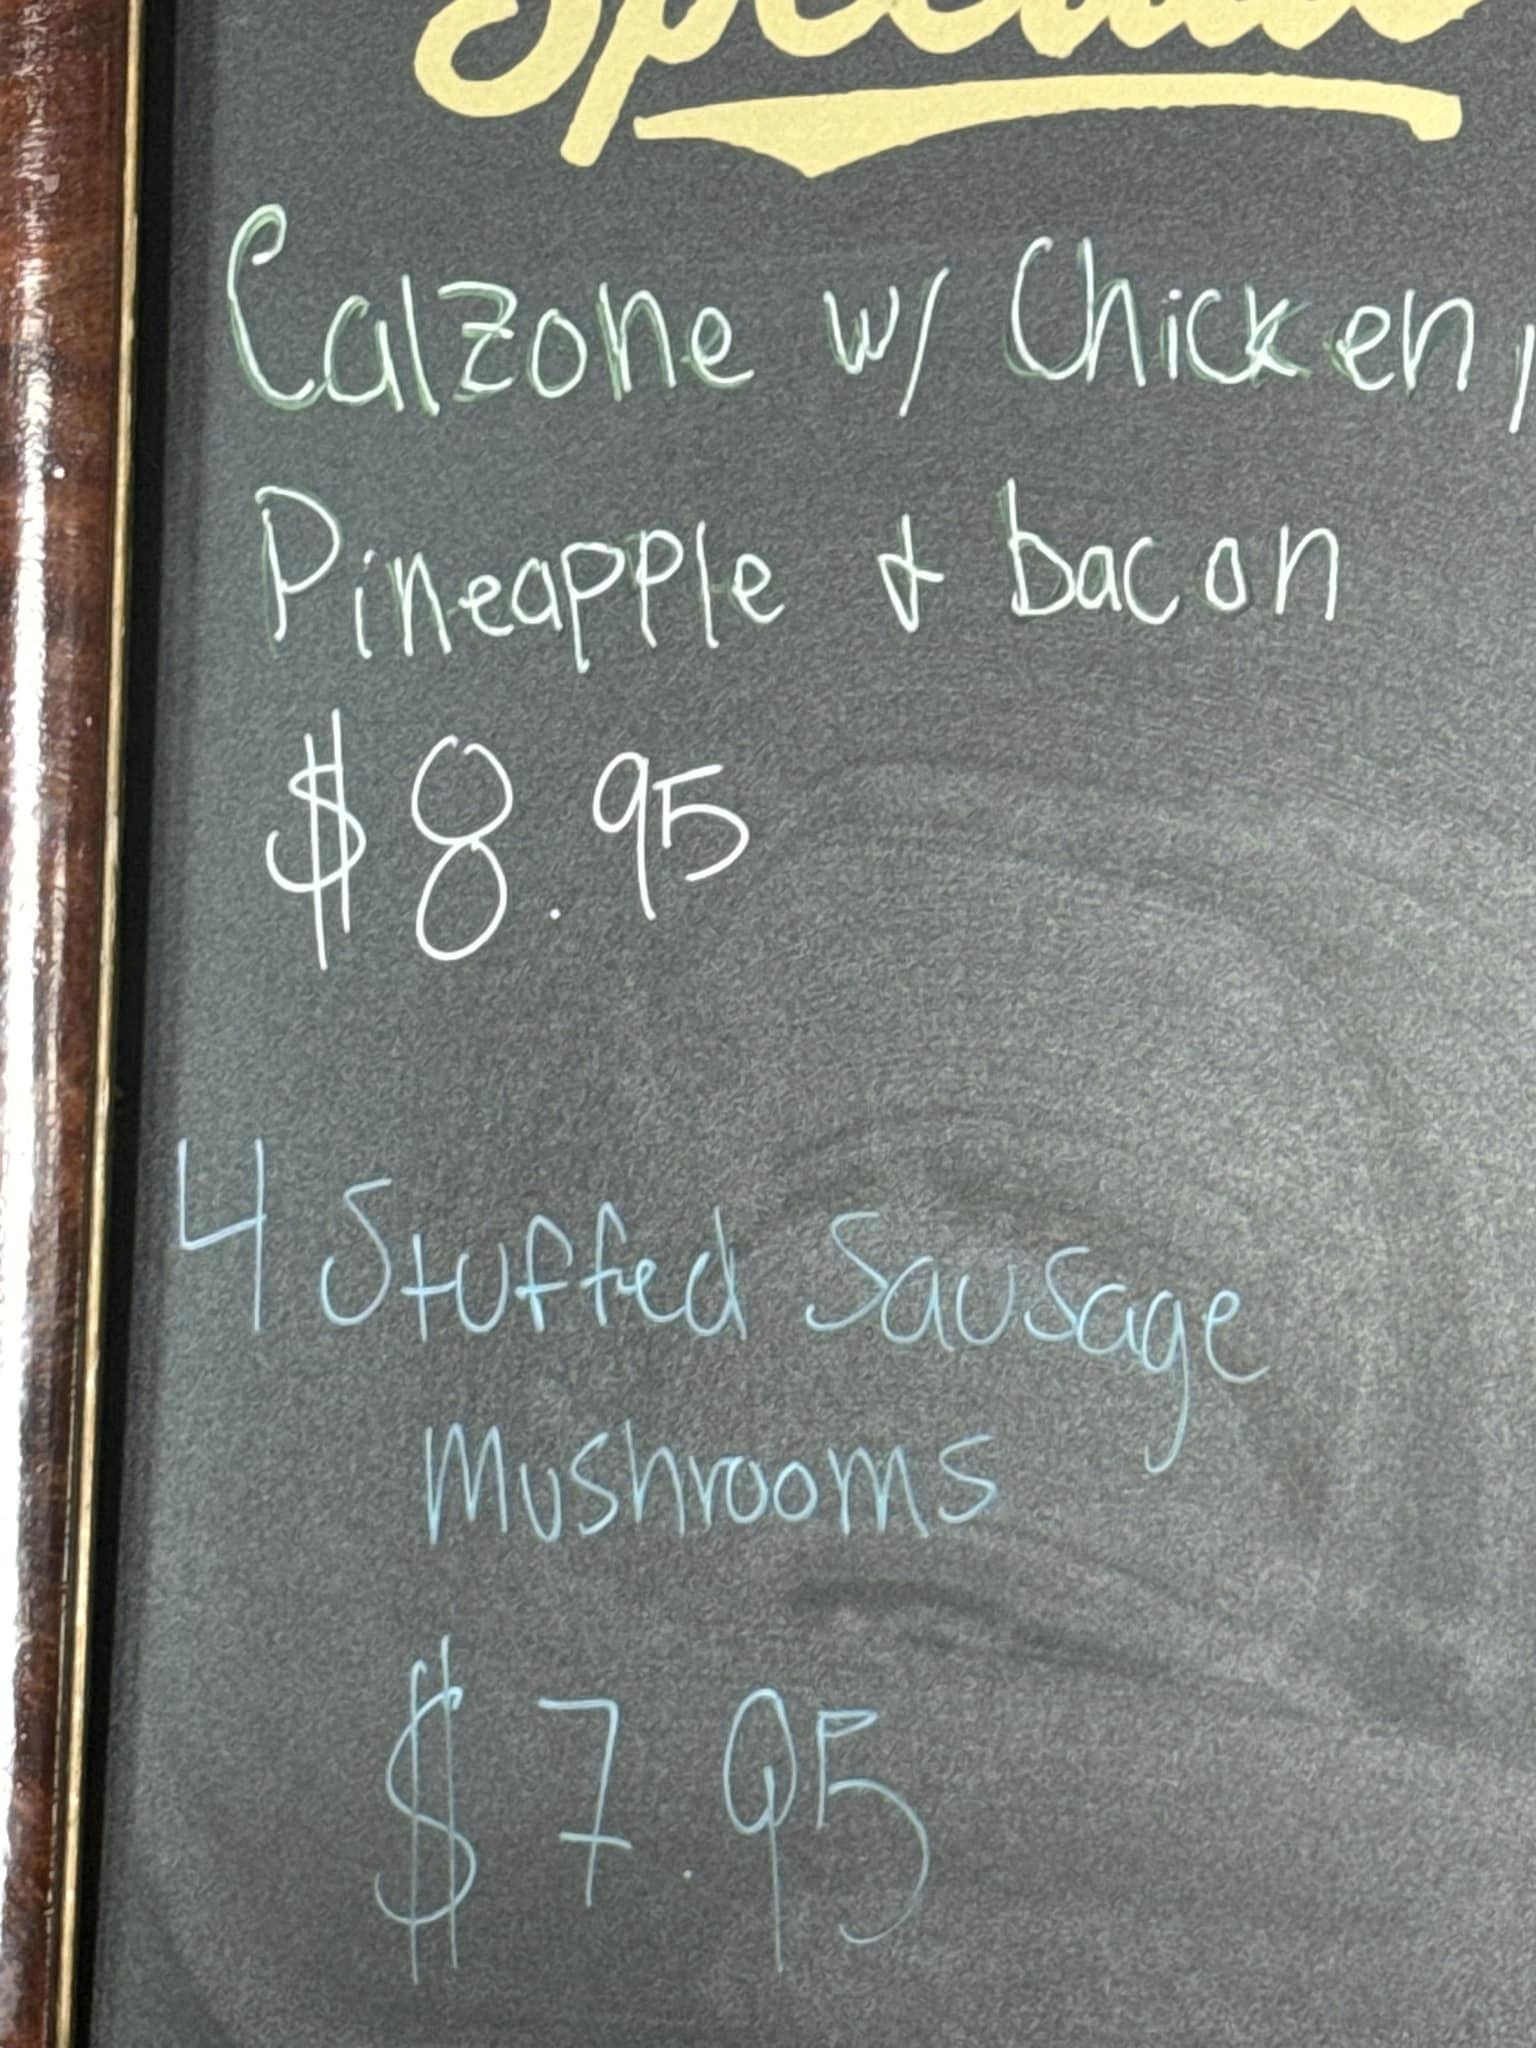 Calzone w/ Chicken,
Pineapple & bacon
$8.95
4 Stuffed Sausage
Mushrooms
$7.95